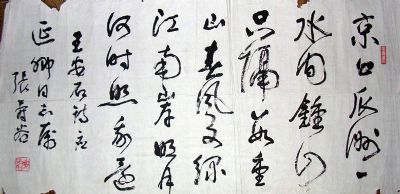 京口瓜洲一
水間鍾山
只隔數重
山春風又綠
江南岸明月
何時照我還
王安石詩
延卿同志屬
張